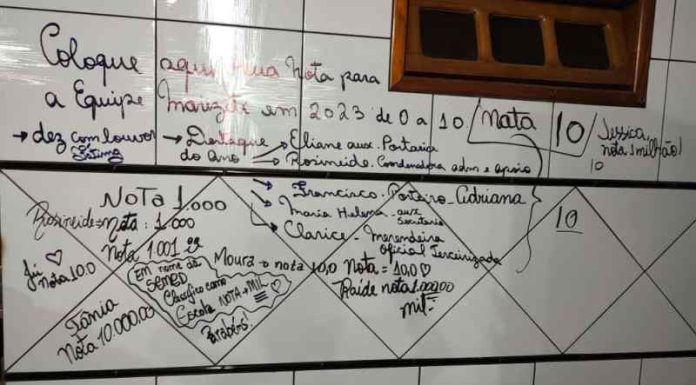 Coloque aqui sua Nota para
a Equipe Marizete em 2023 de 0 a 10
Nata
10
Jessica,
nota 1 milhão!
10
→ dez com louvor
Fátima
→ Destaque
do ano
→ Eliane aux. Portaria
→ Rosineide. Coordenadora adm e apoio
→ Francisco. Porteiro - Adriana
→ Maria Helena - aux.
Secretaria
→ Clarice - Merendeira
Oficial Terceirizada
10
NoTa 1.000
Rosineide = nota: 1.000
Nota 1.001
Jú
Nota 10.0
Tânia
Nota 10.000.00
Em nome da
SEMED
Classifico como
Escola NOTA + MIL
Parabéns!
Moura - o nota 10,0
Nota = 10,0 ♡
Raide nota 1.000,00
mil